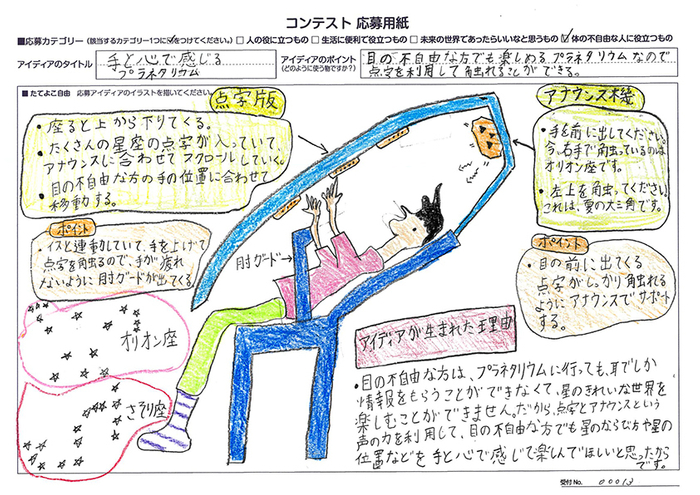 コンテスト 応募用紙
■応募カテゴリー（該当するカテゴリー1つに☑をつけてください。） □ 人の役に立つもの □ 生活に便利で役立つもの □ 未来の世界であったらいいなと思うもの ☑ 体の不自由な人に役立つもの
アイディアのタイトル
手と心で感じる
プラネタリウム
アイディアのポイント
（どのように使う物ですか？）
目の不自由な方でも楽しめるプラネタリウムなので
点字を利用して触れることができる。
■ たてよこ自由 応募アイディアのイラストを描いてください
点字版
・座ると上から下りてくる。
・たくさんの星座の点字が入っていて、
アナウンスに合わせてスクロールしていく。
・目の不自由な方の手の位置に合わせて
移動する。
ポイント
・イスと連動していて、手を上げて
点字を触るので、手が疲れ
ないように肘ガードが出てくる
肘ガード
オリオン座
さそり座
アナウンス機
・手を前に出してください。
今、右手で触っているのは
オリオン座です。
・左上を触ってください。
これは、夏の大三角です。
ポイント
・目の前に出てくる
点字がしっかり触れる
ようにアナウンスでサポート
する。
アイディアが生まれた理由
・目の不自由な方は、プラネタリウムに行っても、耳でしか
情報をもらうことができなくて、星のきれいな世界を
楽しむことができません。だから、点字とアナウンスという
声の力を利用して、目の不自由な方でも星のならび方や星の
位置などを手と心で感じて楽しんでほしいと思ったから
です。
受付No. 00013